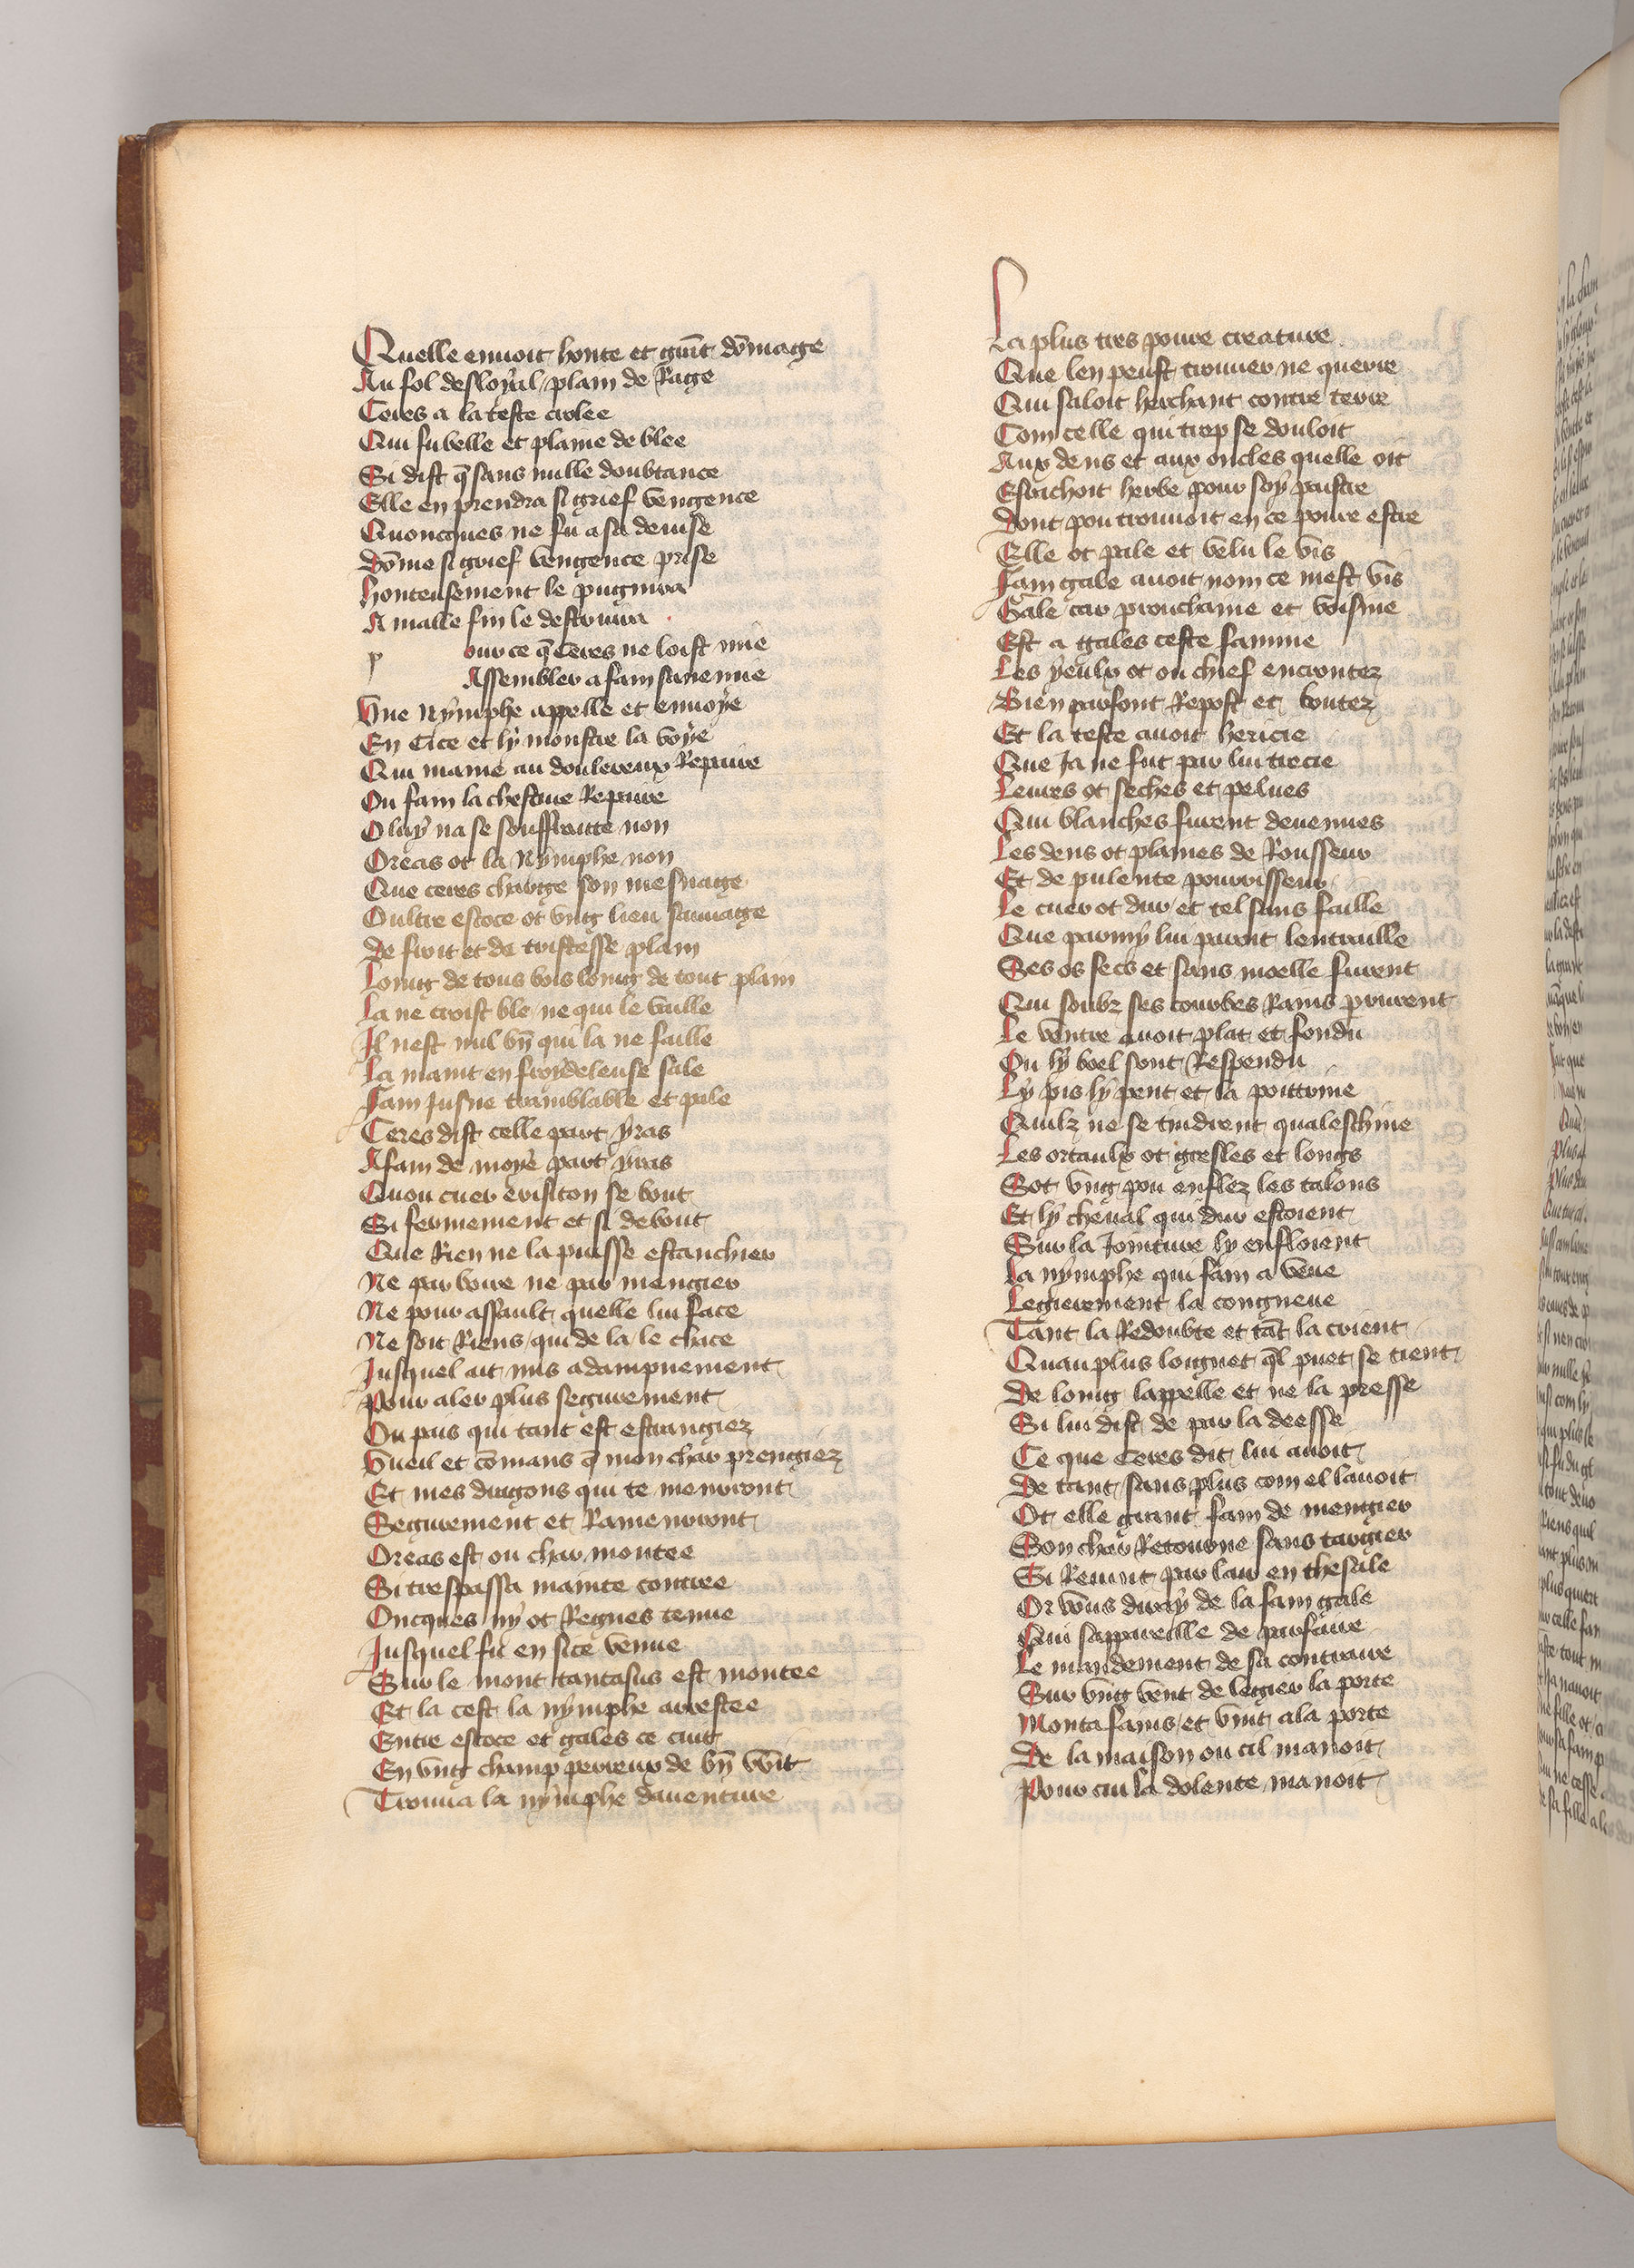 Quelle enuoit honte et gñt dõmage
Au fol desloyal plain de Rage
Ceres a la teste crolee
Qui fu belle et plaine de blee
Si dist q̃ sans nulle doubtance
Elle en prendra si grief vengence
Quoncques ne fu a sa deuise
Dõme si grief vengence prise
Honteusement le pugnira
A malle fin le destruira
p our ce q̃ Ceres ne loist mie
Assembler a fam sanemie
Vne Nymphe appelle et enuoye
En Cice et ly monstre la voye
Qui maine au doulereux Repaire
Ou fam la chestiue Repaire
O luy na se souffraitte non
Oreas ot la Nymphe non
Que ceres charge son mesnage
Oultre escoce ot vng lieu sauuage
De froit et de tristesse plain
Loing de tous bois loing de tout plain
La ne croist ble ne qui le vaille
Il nest nul bñ qui la ne faille
La maint en froydeleuse sale
Fam Iusne tramblable et pale
Ceres dist celle part yras
A fam de moye part yras
Quou cuer erisiton se bout
Si fermement et si debout
Que Rien ne la puisse estanchier
Ne par boire ne par mengier
Ne pour assault quelle lui face
Ne soit Riens qui de la le chace
Iusquel ait mis a dampnement
Pour aler plus segurement
Ou pais qui tant est estrangiez
Vueil et cõmans q̃ mon char prengiez
Et mes dragons qui te menront
Segurement et Ramenront
Oreas est ou char montee
Si trespassa mainte contree
Oncques ny ot Regnes tenue
Iusquel fu en sice venue
Sur le mont tantasus est montee
Et la cest la nymphe arrestee
Entre escoce et gales ce cuit
En vng champ perreux de bñ wit
Trouua la nymphe dauenture
La plus tres poure creature
Que len peust trouuer ne querre
Qui saloit herchant contre terre
Com celle qui trop se douloit
Aux dens et aux oncles quelle oit
Esrachoit herbe pour soy paistre
Dont pou trouuoit en ce poure estre
Elle ot pale et velu le vis
Fam gale auoit nom ce mest vis
Gale car prouchaine et voisine
Est a gales ceste famine
Les yeulx ot ou chief encrontez
Bien parfont Repost et boutez
Et la teste auoit hericie
Que Ja ne fut par lui trecie
Leures ot seches et pelues
Qui blanches furent deuenues
Les dens ot plaines de Rousseur
Et de pulente pourrisseur
Le cuer ot dur et tel sans faille
Que parmy lui paroit lentraille
Ses os secs et sans moelle furent
Qui soubz ses courbes Rains prurent
Le ventre auoit plat et fondu
Ou ly boel sont Respendu
Ly pis ly pent et la poittrine
Quilz ne se tindrent qua leschine
Les ortaulx ot gresles et longs
Sot vng pou enflez les talons
Et ly cheual qui dur estoient
Sur la Iointure ly enfloient
La nymphe qui fam a veue
Legierement la congneue
Tant la Redoubte et tãt la crient
Quau plus loignet q̃l puet se tient
De loing lappelle et ne la presse
Si lui dist de par la deesse
Ce que Ceres dit lui auoit
De tant sans plus com el lauoit
Ot elle grant fam de mengier
Son char Retourne sans targier
Si Reuint par lair en thesale
Or vous diray de la fam gale
Qui sappareille de parfaire
Le mandement de sa contraire
Sur vng vent de legier la porte
Monta fains et vint a la porte
De la maison ou cil manoit
Pour cui la dolente manoit